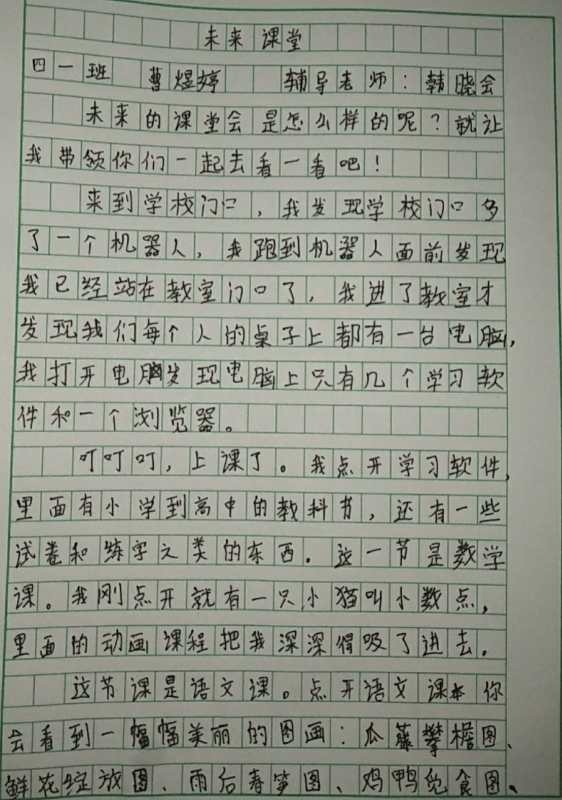 未来课堂
四一班 曹煜婷 辅导老师：韩晓会
未来的课堂会是怎么样的呢？就让
我带领你们一起去看一看吧！
来到学校门口，我发现学校门口多
了一个机器人，我跑到机器人面前发现
我已经站在教室门口了，我进了教室才
发现我们每个人的桌子上都有一台电脑，
我打开电脑发现电脑上只有几个学习软
件和一个浏览器。
叮叮叮，上课了。我点开学习软件，
里面有小学到高中的教科书，还有一些
试卷和练字之类的东西。这一节是数学
课。我刚点开就有一只小猫叫小数点，
里面的动画课程把我深深得吸了进去。
这节课是语文课。点开语文课本你
会看到一幅幅美丽的图画：瓜藤攀檐图、
鲜花绽放图、雨后春笋图、鸡鸭觅食图、